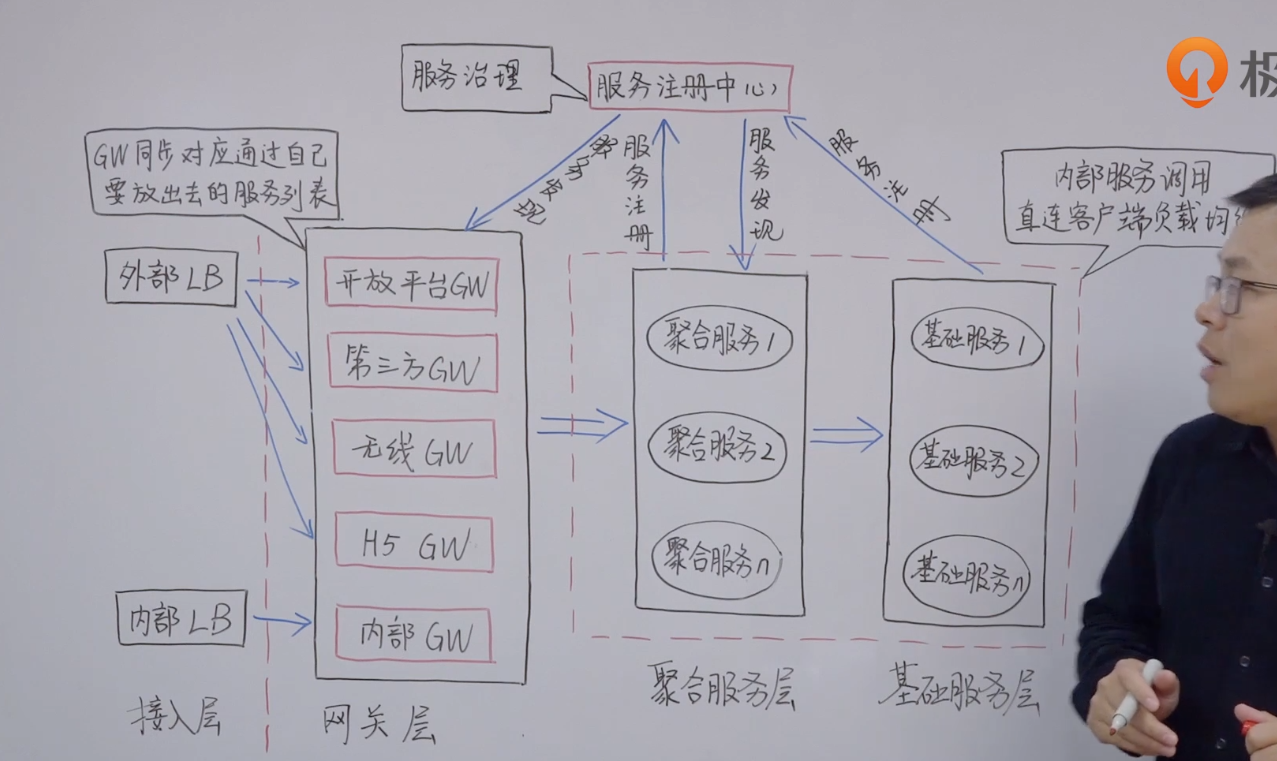 极
服务治理
服务注册中心
GW同步对应通过自己
要放出去的服务列表
服务发现
服务注册
服务发现
服务注册
内部服务调用
直连客户端负载均
外部LB
开放平台GW
第三方GW
无线GW
H5 GW
内部LB
内部GW
聚合服务1
聚合服务2
聚合服务n
基础服务1
基础服务2
基础服务n
接入层
网关层
聚合服务层
基础服务层